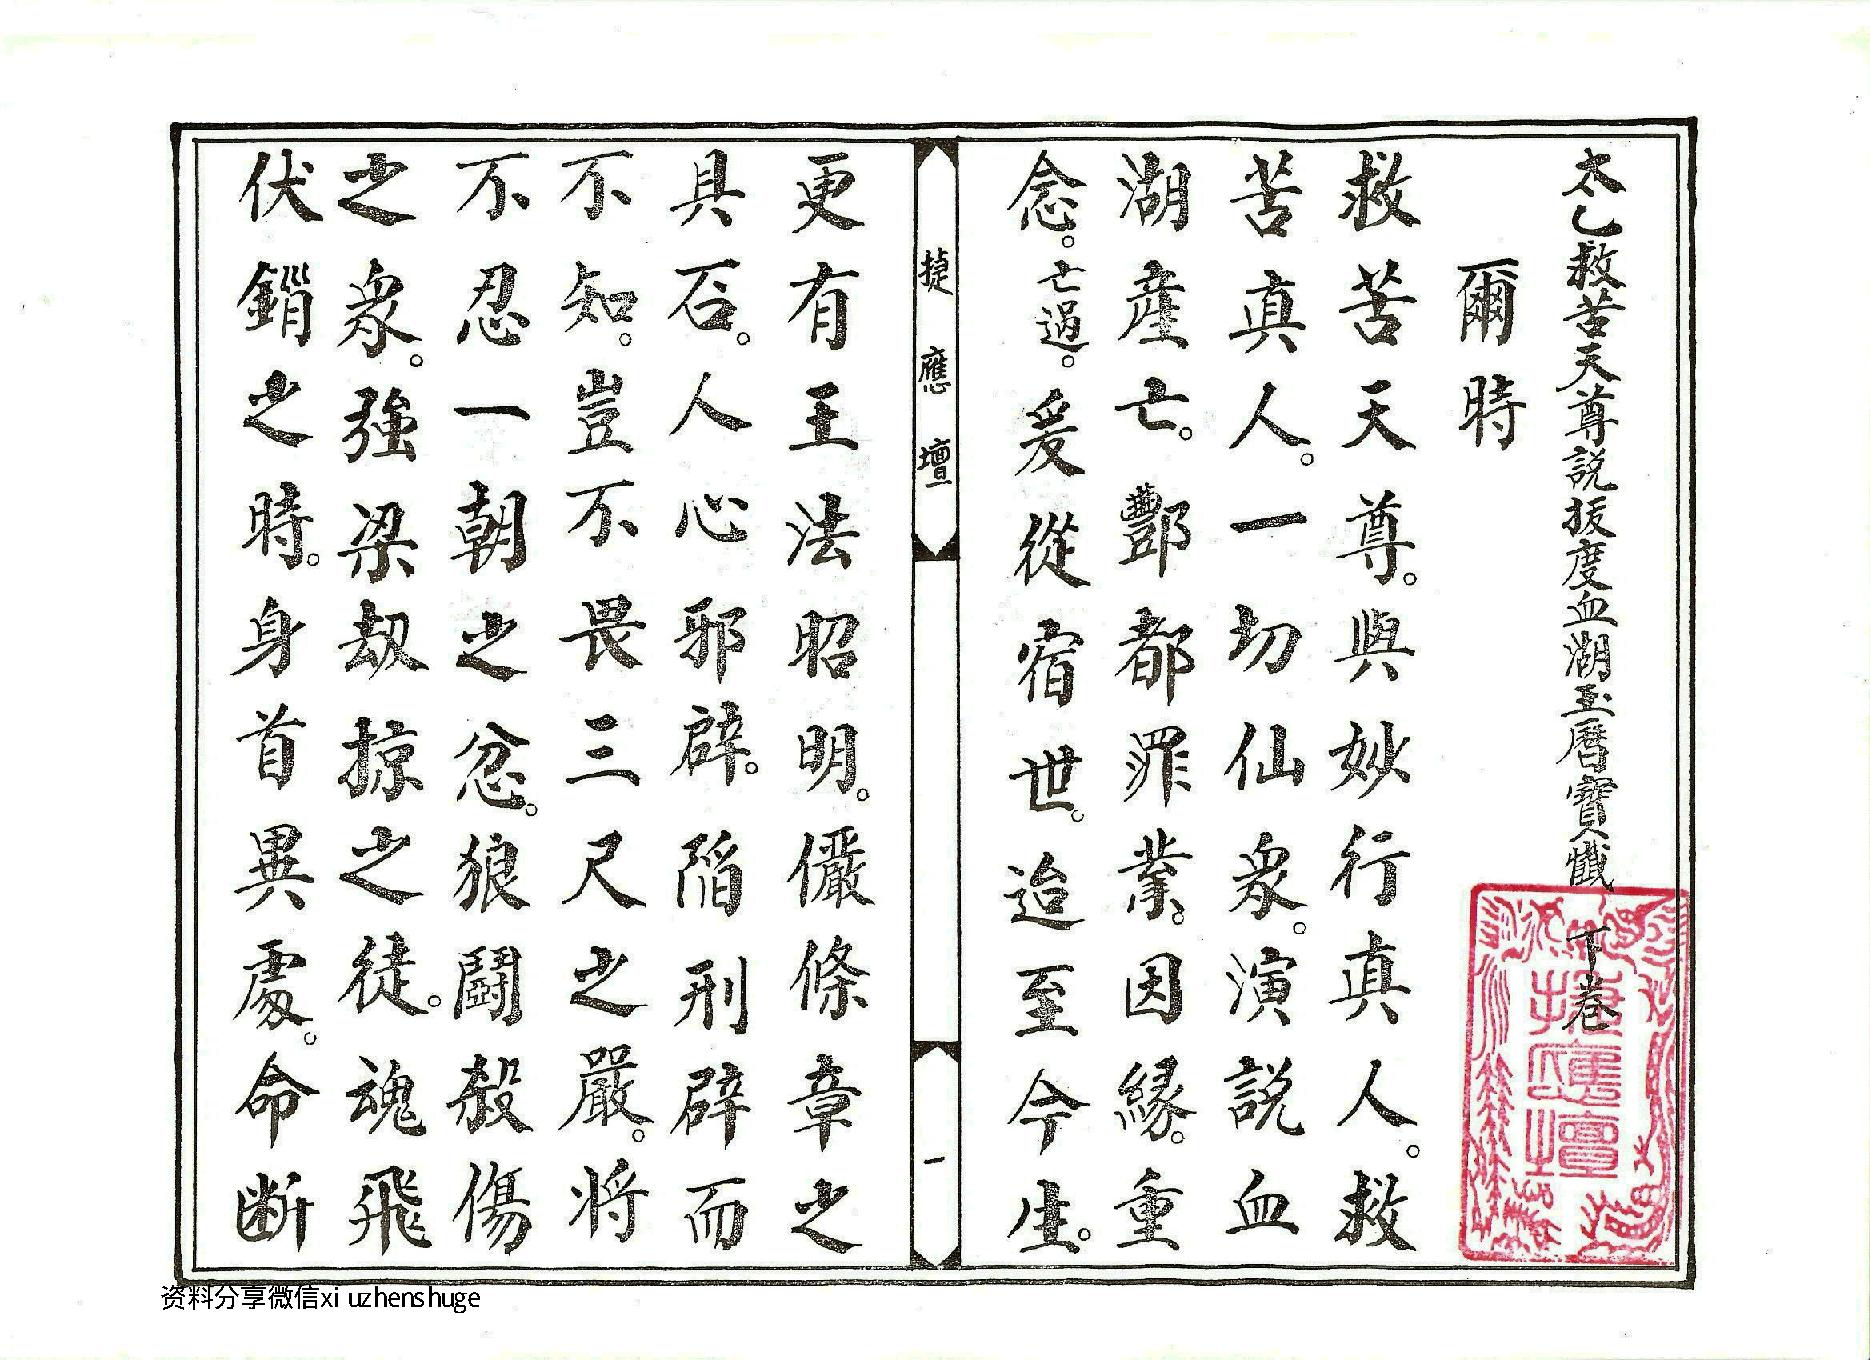 太乙救苦天尊説拔度血湖玉曆寶懺 下卷
爾時
救苦天尊。與妙行真人。救
苦真人。一切仙衆。演説血
湖産亡。酆都罪業。因緣。重
念。亡過。爰從宿世。迨至今生。
捷應壇
一
更有王法昭明。儼條章之
具石。人心邪辟。陷刑辟而
不知。豈不畏三尺之嚴。將
不忍一朝之忿。狼鬪殺傷
之衆。強梁劫掠之徒。魂飛
伏鎻之時。身首異處。命断
捷應壇
资料分享微信xiuzhenshuge